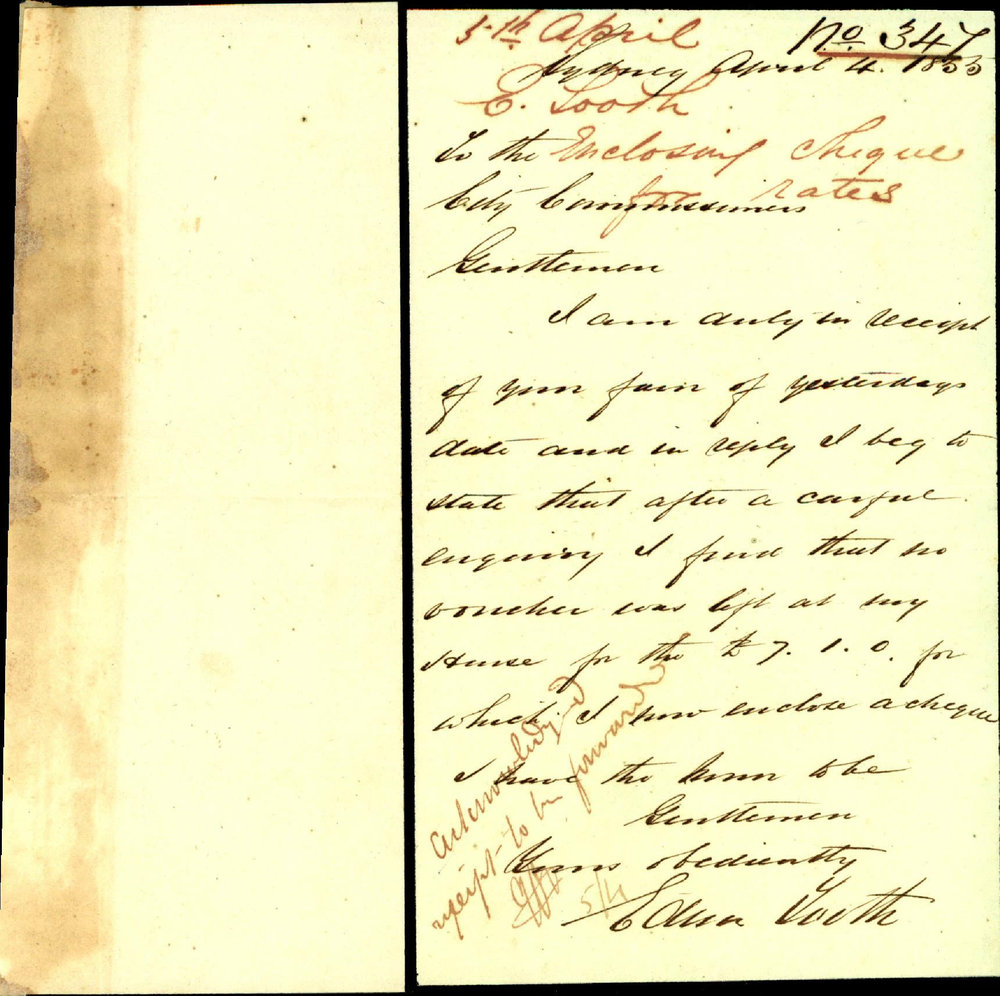 5th April
No. 347
Sydney April 4. 1855
E. Tooth
To the
Enclosing Cheque
for rates
City Commissioners
Gentlemen
I am duly in receipt
of your favr of yesterdays
date and in reply I beg to
state that after a careful
enquiry I find that no
voucher was left at my
House for the £7.1.0. for
which I now enclose a cheque
I have the honr to be
Gentlemen
Yours obediently
Edwn Tooth
acknowledged
receipt to be forwarded
5/4